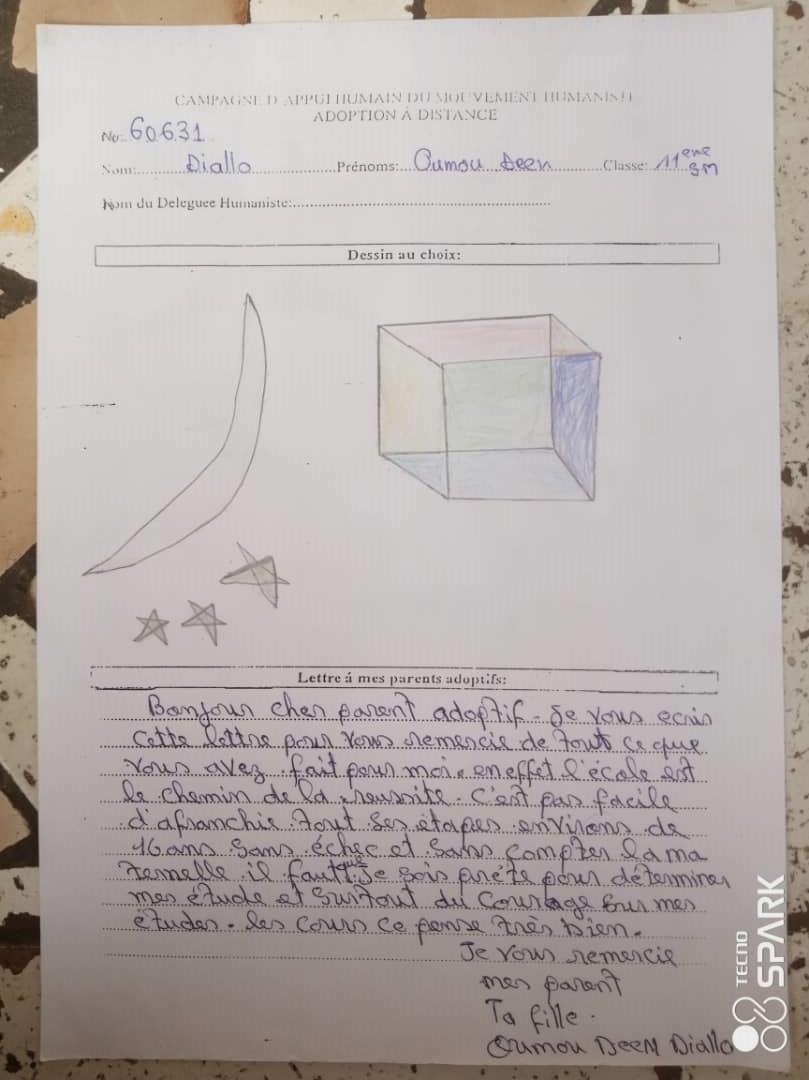 CAMPAGNE D'APPUI HUMAIN DU MOUVEMENT HUMANISTE
ADOPTION À DISTANCE
No: 60631
Nom: Diallo Prénoms: Oumou Deen Classe: 11eme SM
Nom du Deleguee Humaniste:
Dessin au choix:
Lettre á mes parents adoptifs:
Bonjour cher parent adoptif - Je vous ecris
Cette lettre pour vous remercie de tout ce que
vous avez fait pour moi. en effet l'école est
le chemin de la reussite. C'est pas facile
d'afranchie tout ses étapes environs de
16 ans sans échec et sans compter la ma
ternelle il faut que Je sois prète pour déterminer
mes étude et surtout du Courage sur mes
études. les cours ce pense très bien.
Je vous remercie
mes parent
Ta fille.
Oumou DEEN Diallo
TECNO
SPARK